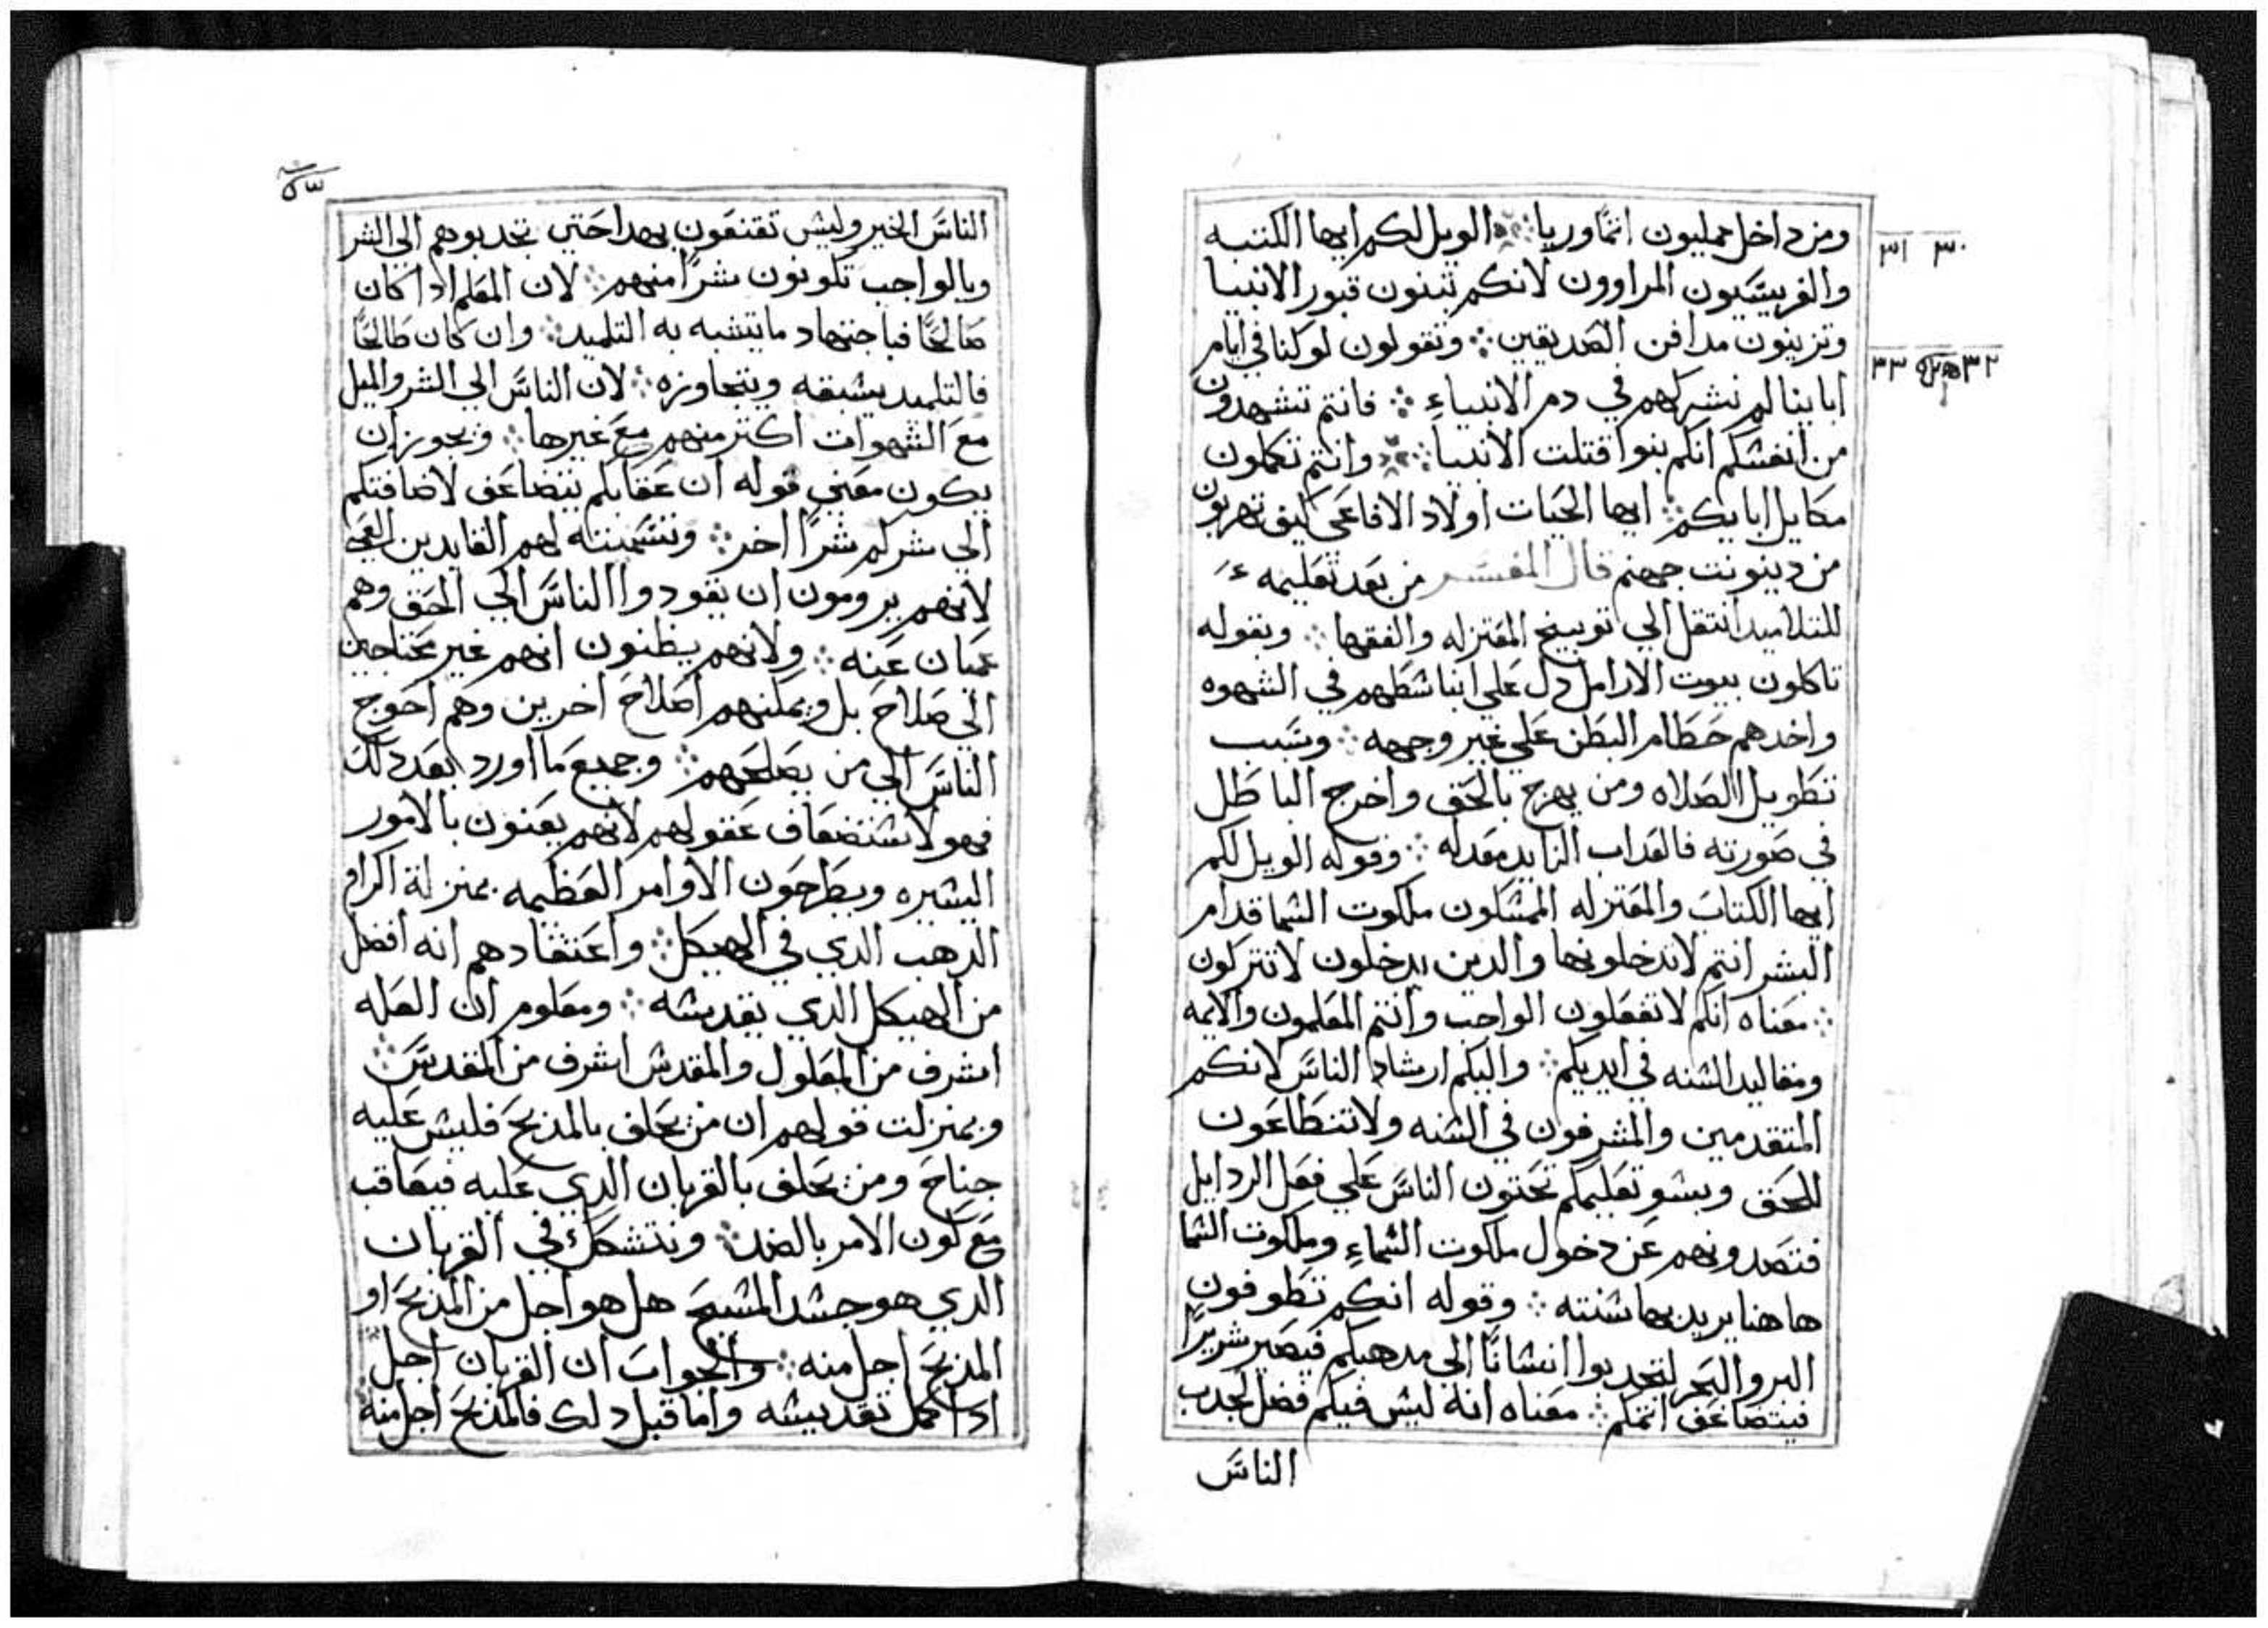 ومن داخل مملیون اثمًا وريا ⁘ الويل لكم ايها الكتبه
والفريسيون المراوون لانكم تبنون قبور الانبيا
وتزينون مدافن الصديقين ⁘ وتقولون لو كنا في ايام
ابا ينا لم نشركهم في دم الانبياء ⁘ فانتم تشهدون
من انفسكم انكم بنوا قتلت الانبيا ⁘ وانتم تكملون
مكايل ابايكم ⁘ ايها الحيات اولاد الافاعي كيف تهربون
من دينونت جهنم قال المفسر من بعد تعليمه
للتلاميد انتقل الي توبيخ المعتزله والفقها ⁘ وبقوله
تاكلون بيوت الارامل دل علي انبا شطهم في الشهوه
واخدهم حطام البطن علي غير وجهه ⁘ وسبب
تطويل الصلاه ومن يهرج بالحق واخرج الباطل
في صورته فالعداب الزايد معدله ⁘ وقوله الويل لكم
ايها الكتاب والمعتزله الممسكون ملكوت السما قدام
البشر انتم لا تدخلونها والدين يدخلون لا تتركون
⁘ معناه انكم لا تفعلون الواجب وانتم المعلمون والايمه
ومقاليد السنه في ايديكم ⁘ واليكم ارشاد الناس لانكم
المتقدمين والمشرفون في السنه ولا تتطاعون
للحق وبسو تعليمكم تحتون الناس علي فعل الردايل
فتصدونهم عن دخول ملكوت السماء وملكوت السما
هاهنا يريد بها سنته ⁘ وقوله انكم تطوفون
البر والبحر لتجدبوا انسانًا الي مدهبكم فيصير شريرًا
فيتضاعف اثمكم ⁘ معناه انه ليس فيكم فضل لجدب
الناس
٣٠ ٣١
٣٢ ٣٣
٥٣
الناس الخير وليس تقنعون بهدا حتي تجدبوهم الي الشر
وبالواجب تكونون شرًا منهم ⁘ لان المعلم ادا كان
صالحًا فباجتهاد ما يتشبه به التلميد ⁘ وان كان طالحًا
فالتلميد يسبقه ويتجاوزه ⁘ لان الناس الي الشر والميل
مع الشهوات اكثر منهم مع غيرها ⁘ ويجوز ان
يكون معني قوله ان عقابكم يتضاعف لاضافتكم
الي شركم شرًا اخر ⁘ وتسميته لهم القايدين العمي
لانهم يرومون ان يقودوا الناس الي الحق وهم
عميان عنه ⁘ ولانهم يظنون انهم غير محتاجين
الي صلاح بل ويمكنهم اصلاح اخرين وهم احوج
الناس الي من يصلحهم ⁘ وجميع ما اورد بعد دلك
فهو لاستضعاف عقولهم لانهم يعنون بالامور
اليسيره ويطرحون الاوامر العظيمه بمنزلة اكرام
الدهب الدي في الهيكل ⁘ واعتقادهم انه افضل
من الهيكل الدي يقدسه ⁘ ومعلوم ان العله
اشرف من المعلول والمقدس اشرف من المقدس ⁘
وبمنزلت قولهم ان من يحلف بالمذبح فليس عليه
جناح ومن يحلف بالقربان الدي عليه فيعاقب
مع كون الامر بالضد ⁘ ونتشكك في القربان
الدي هو جسد المسيح هل هو اجل من المذبح او
المذبح اجل منه ⁘ والجواب ان القربان اجل
ادا كمل تقديسه واما قبل دلك فالمذبح اجل منه